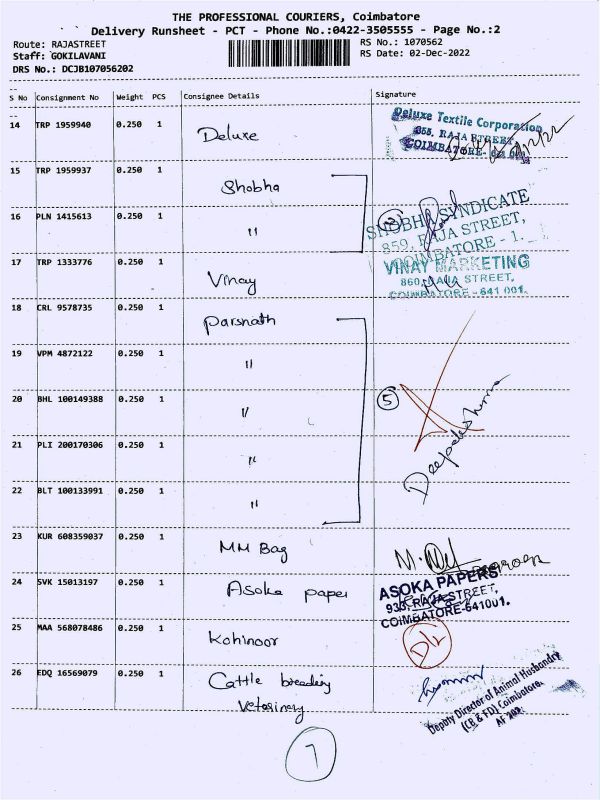 THE PROFESSIONAL COURIERS, Coimbatore
Delivery Runsheet - PCT - Phone No.:0422-3505555 - Page No.:2
Route: RAJASTREET RS No.: 1070562
Staff: GOKILAVANI RS Date: 02-Dec-2022
DRS No.: DCJB107056202
S No Consignment No Weight PCS Consignee Details Signature
14 TRP 1959940 0.250 1 Deluxe
Deluxe Textile Corporation
855, RAJA STREET,
COIMBATORE-
15 TRP 1959937 0.250 1 Shobha
16 PLN 1415613 0.250 1 "
SHOBHA SYNDICATE
859, RAJA STREET,
COIMBATORE - 1.
17 TRP 1333776 0.250 1 Vinay
VINAY MARKETING
860, RAJA STREET,
COIMBATORE - 641 001.
18 CRL 9578735 0.250 1 Parsnath
19 VPM 4872122 0.250 1 "
20 BHL 100149388 0.250 1 " 5
21 PLI 200170306 0.250 1 "
22 BLT 100133991 0.250 1 "
23 KUR 608359037 0.250 1 MM Bag
24 SVK 15013197 0.250 1 Asoka paper
ASOKA PAPERS
933, RAJA STREET,
COIMBATORE-641001.
25 MAA 568078486 0.250 1 Kohinoor
26 EDQ 16569079 0.250 1 Cattle breeding
Vetosinery
Deputy Director of Animal Husbandry
(CB & FD) Coimbatore.
7